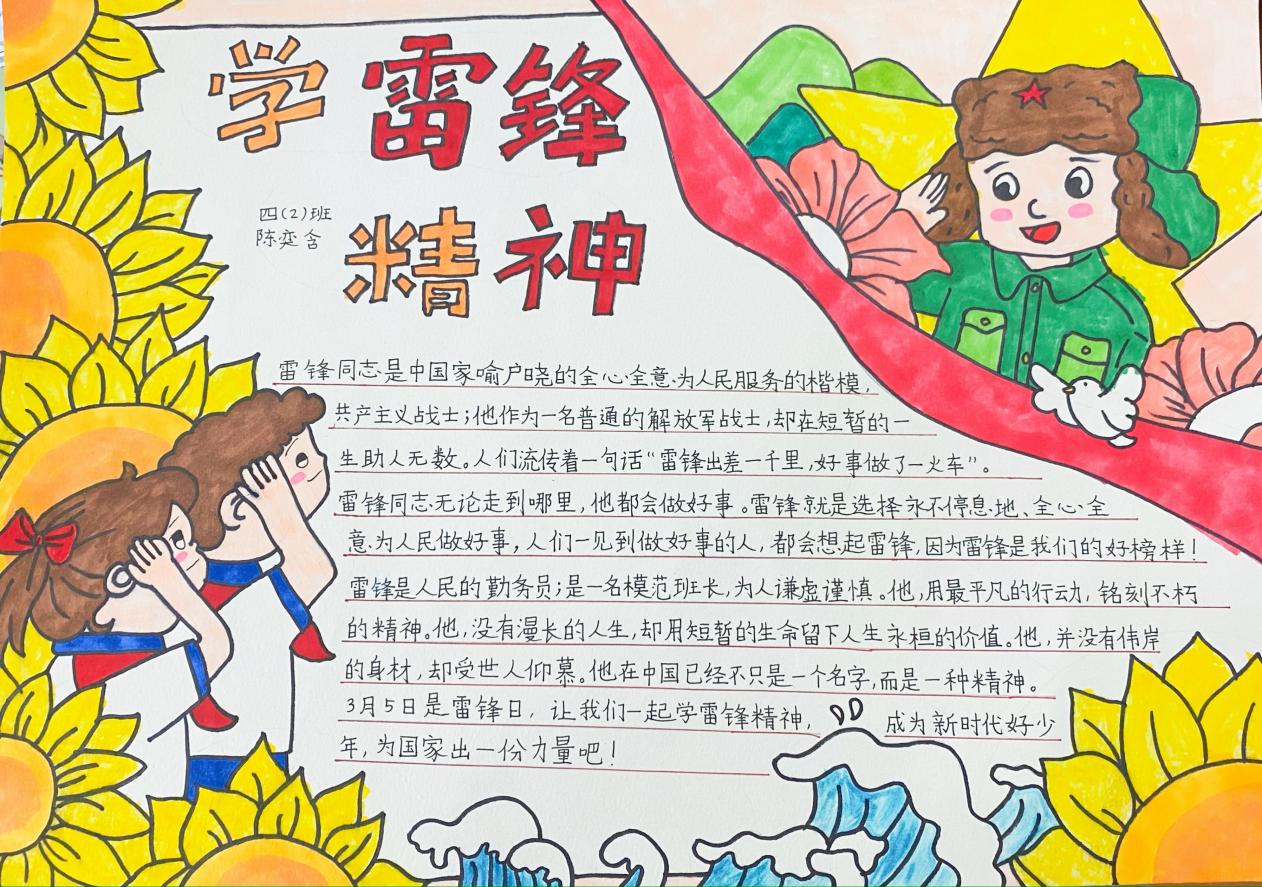 学雷锋
精神
四(2)班
陈奕含
雷锋同志是中国家喻户晓的全心全意为人民服务的楷模,
共产主义战士;他作为一名普通的解放军战士,却在短暂的一
生助人无数。人们流传着一句话“雷锋出差一千里,好事做了一火车”。
雷锋同志无论走到哪里,他都会做好事。雷锋就是选择永不停息地、全心全
意为人民做好事,人们一见到做好事的人,都会想起雷锋,因为雷锋是我们的好榜样!
雷锋是人民的勤务员;是一名模范班长,为人谦虚谨慎。他,用最平凡的行动,铭刻不朽
的精神。他,没有漫长的人生,却用短暂的生命留下人生永桓的价值。他,并没有伟岸
的身材,却受世人仰慕。他在中国已经不只是一个名字,而是一种精神。
3月5日是雷锋日,让我们一起学雷锋精神,成为新时代好少
年,为国家出一份力量吧!